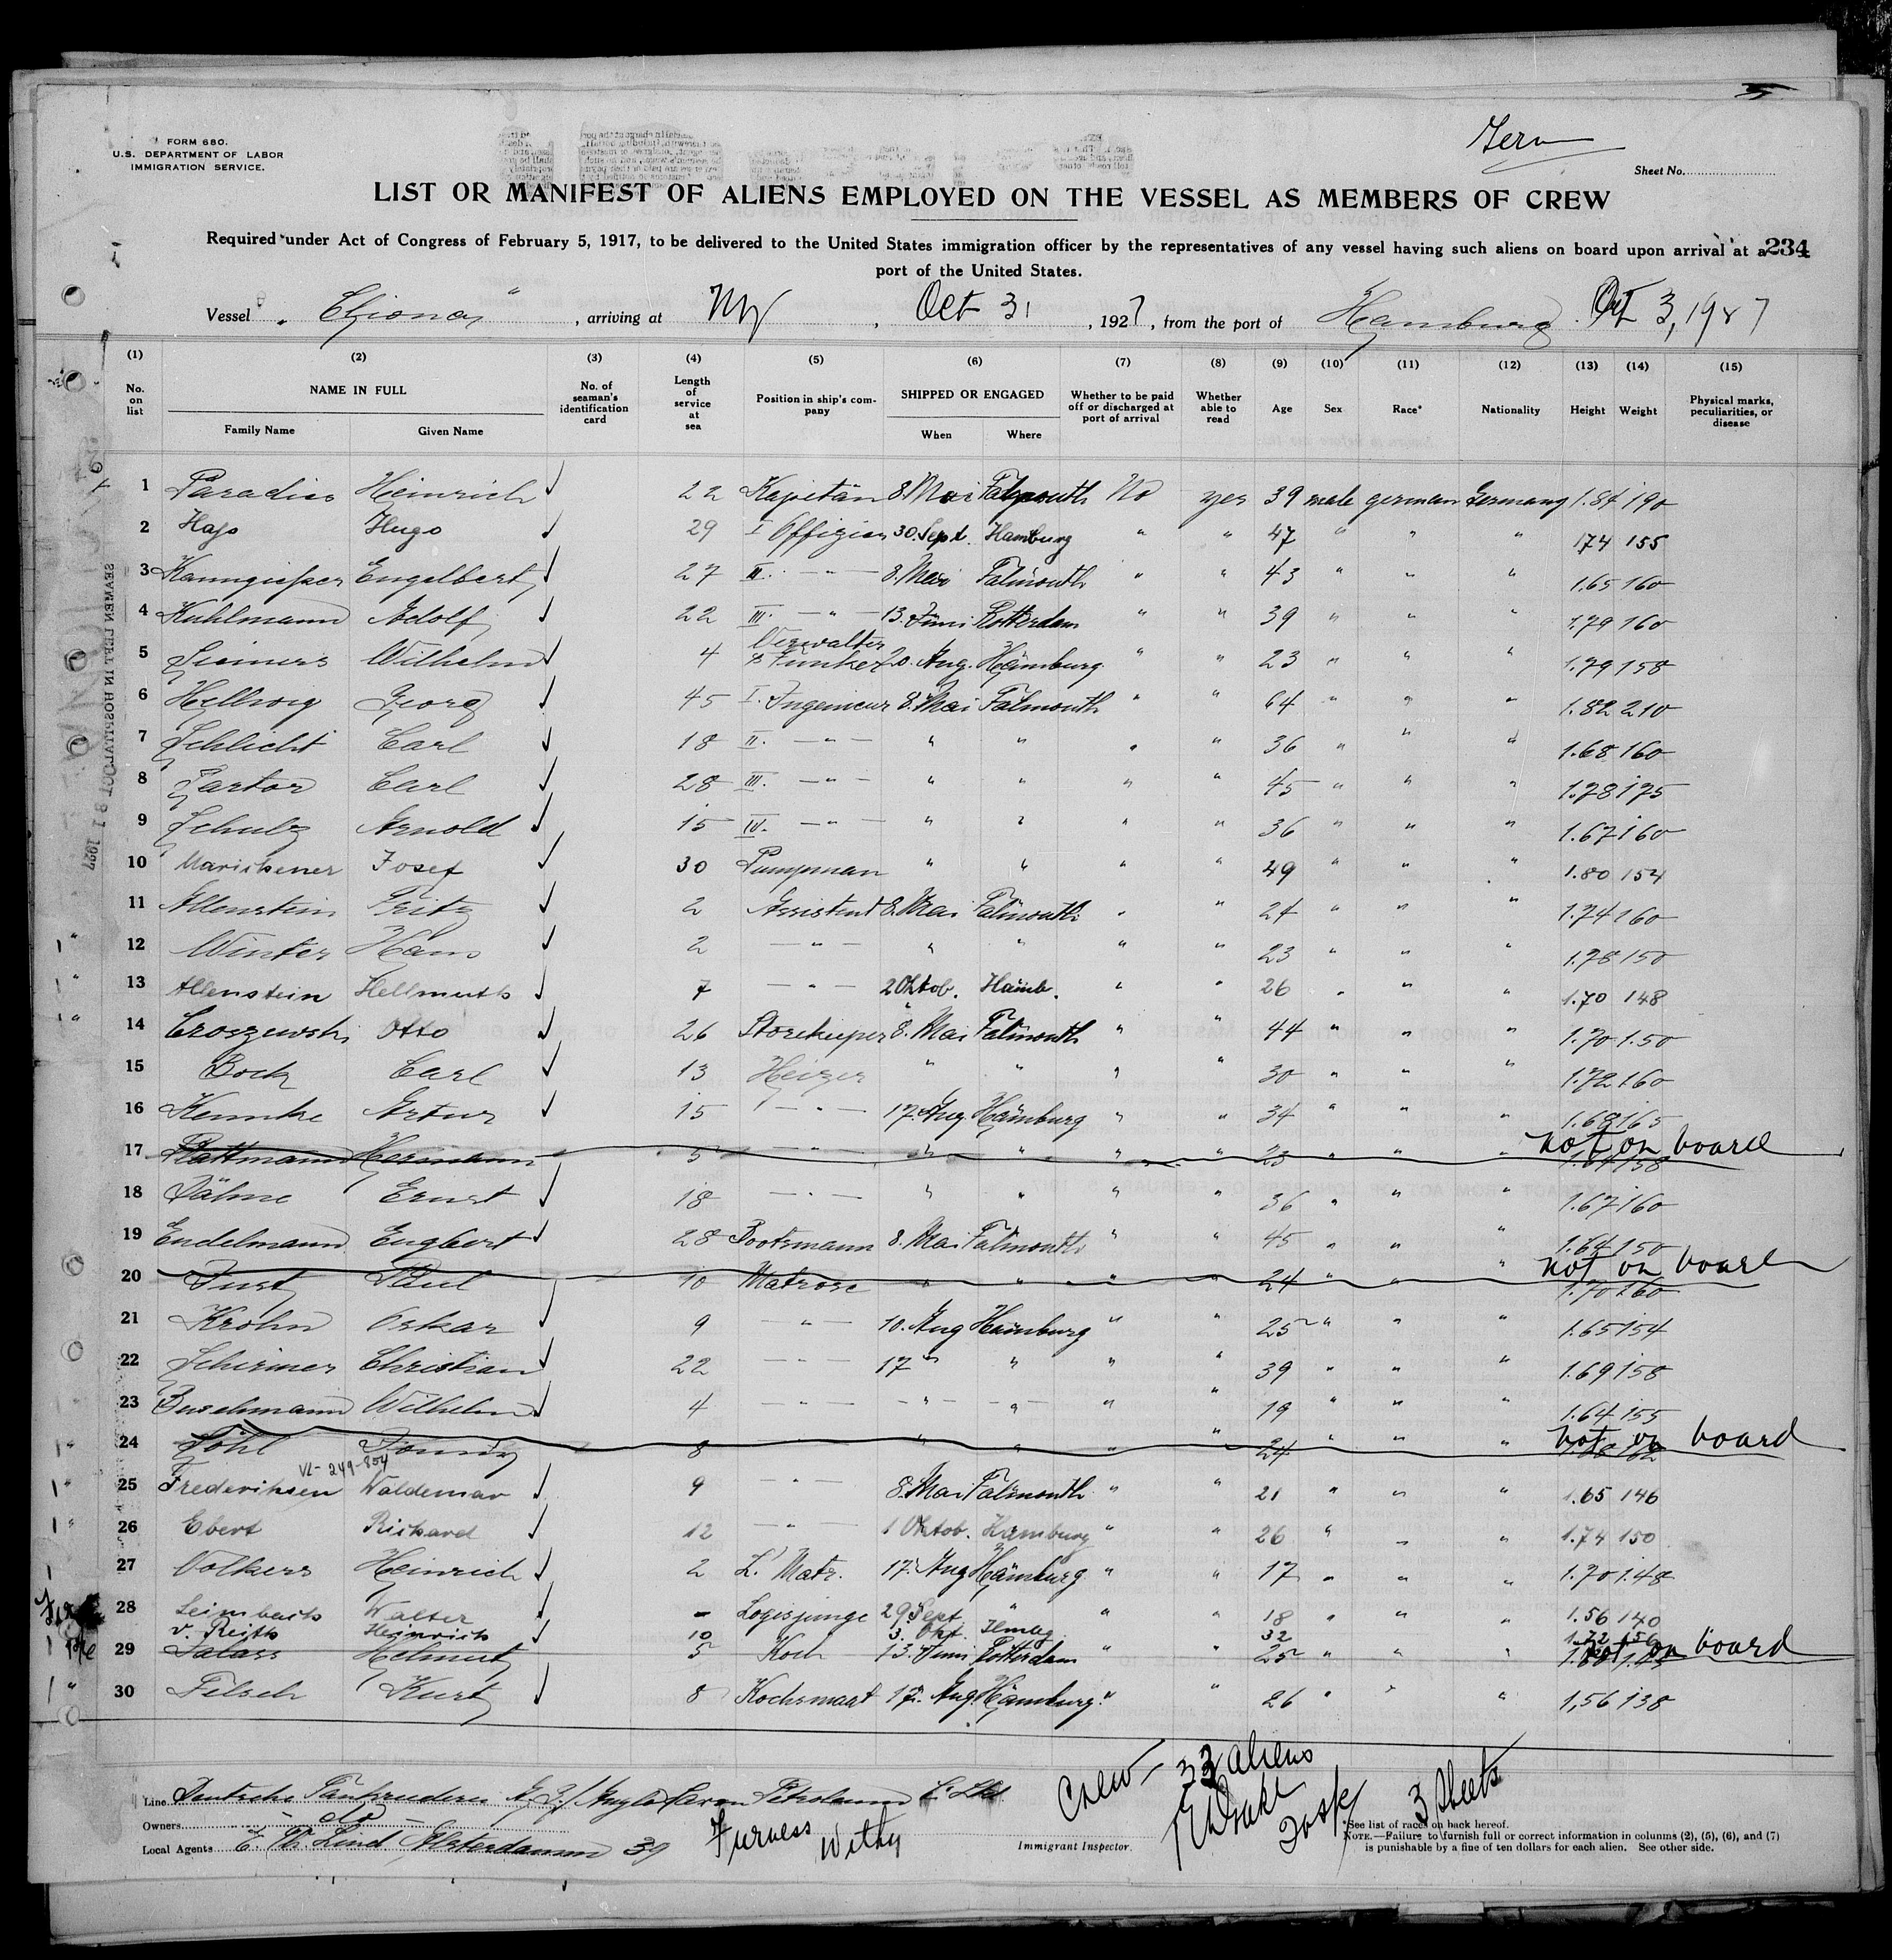 Germ
FORM 680.
U.S. DEPARTMENT OF LABOR
IMMIGRATION SERVICE.
Sheet No.
LIST OR MANIFEST OF ALIENS EMPLOYED ON THE VESSEL AS MEMBERS OF CREW
Required under Act of Congress of February 5, 1917, to be delivered to the United States immigration officer by the representatives of any vessel having such aliens on board upon arrival at a 234
port of the United States.
Vessel , arriving at NY , Oct 31 , 1927, from the port of Hamburg Oct 3, 1927
(1) (2) (3) (4) (5) (6) (7) (8) (9) (10) (11) (12) (13) (14) (15)
No. on list NAME IN FULL Family Name Given Name No. of seaman's identification card Length of service at sea Position in ship's company SHIPPED OR ENGAGED When Where Whether to be paid off or discharged at port of arrival Whether able to read Age Sex Race* Nationality Height Weight Physical marks, peculiarities, or disease
1 Paradies Heinrich ✓ 22 Kapitän 8. Mai Falmouth No yes 39 male german Germany 1.84 190
2 Hugo ✓ 29 I Offizier 30. Sept. Hamburg " " 47 " " " 174 155
3 Kanngiesser Engelbert ✓ 27 II. — " — 8. Mai Falmouth " " 43 " " " 1.65 160
4 Kuhlmann Adolf ✓ 22 III. — " — 13. Juni Rotterdam " " 39 " " " 1.79 160
5 Siemers Wilhelm ✓ 4 Verwalter & Funker 20. Aug. Hamburg " " 23 " " " 1.79 158
6 Hellwig Georg ✓ 45 I. Ingenieur 8. Mai Falmouth " " 64 " " " 1.82 210
7 Schlicht Carl ✓ 18 II. — " — " " " " 36 " " " 1.68 160
8 Sartor Carl ✓ 28 III. — " — " " " " 45 " " " 1.78 175
9 Schulz Arnold ✓ 15 IV. — " — " " " " 36 " " " 1.67 160
10 Marischener Josef ✓ 30 Pumpman " " " " 49 " " " 1.80 154
11 Allenstein Fritz ✓ 2 Assistent 8. Mai Falmouth " " 24 " " " 1.74 160
12 Winter Hans ✓ 2 — " — " " " " 23 " " " 1.78 150
13 Allenstein Hellmuth ✓ 7 — " — 2 Oktob. Hamb. " " 26 " " " 1.70 148
14 Croszewski Otto ✓ 26 Storekieper 8. Mai Falmouth " " 44 " " " 1.70 1.50
15 Bock Carl ✓ 13 Heizer " " " " 30 " " " 1.72 160
16 Hemke Artur ✓ 15 — " — 17. Aug Hamburg " " 34 " " " 1.68 165
17 Plattmann Hermann 5 — " — " " " " 23 " " " 1.64 158 not on board
18 Dähne Ernst ✓ 18 — " — " " " " 36 " " " 1.67 160
19 Endelmann Engbert ✓ 28 Bootsmann 8. Mai Falmouth " " 45 " " " 1.64 150
20 Just Paul 10 Matrose " " " " 24 " " " 1.70 160 not on board
21 Krohn Oskar ✓ 9 — " — 10. Aug Hamburg " " 25 " " " 1.65 154
22 Schirmer Christian ✓ 22 — " — 17 " " " " 39 " " " 1.69 158
23 Buschmann Wilhelm ✓ 4 — " — — " — " — " " 19 " " " 1.64 155
24 Föhl 8 " " " " 24 " " " not on board
VL-249-804
25 Frederiksen Waldemar ✓ 9 — " — 8. Mai Falmouth " " 21 " " " 1.65 146
26 Ebert Richard ✓ 12 — " — 1 Oktob. Hamburg " " 26 " " " 1.74 150
27 Volkers Heinrich ✓ 2 L. Matr. 17. Aug Hamburg " " 17 " " " 1.70 148
28 Leimbach Walter ✓ - Logisjunge 29 Sept. " " " 18 " " " 1.56 140
v. Reith Heinrich ✓ 10 3. Okt. Hmbg 32 1.72 150
29 Salass Helmut 5 Koch 13. Juni Rotterdam " " 25 " " " not on board
30 Filsch Kurt ✓ 8 Kochsmaat 17. Aug. Hamburg " " 26 " " " 1,56 138
SEAMEN LEFT IN HOSPITAL OCT 31 1927
Crew - 33 aliens
3 Sheets
Line Deutsche Tankreederei A.G. / Anglo Saxon Petroleum C. Ltd.
Owners - do -
Local Agents E. Th. Lind, Alsterdamm 39 Furness Withy
Immigrant Inspector.
*See list of races on back hereof.
NOTE.—Failure to furnish full or correct information in columns (2), (5), (6), and (7)
is punishable by a fine of ten dollars for each alien. See other side.